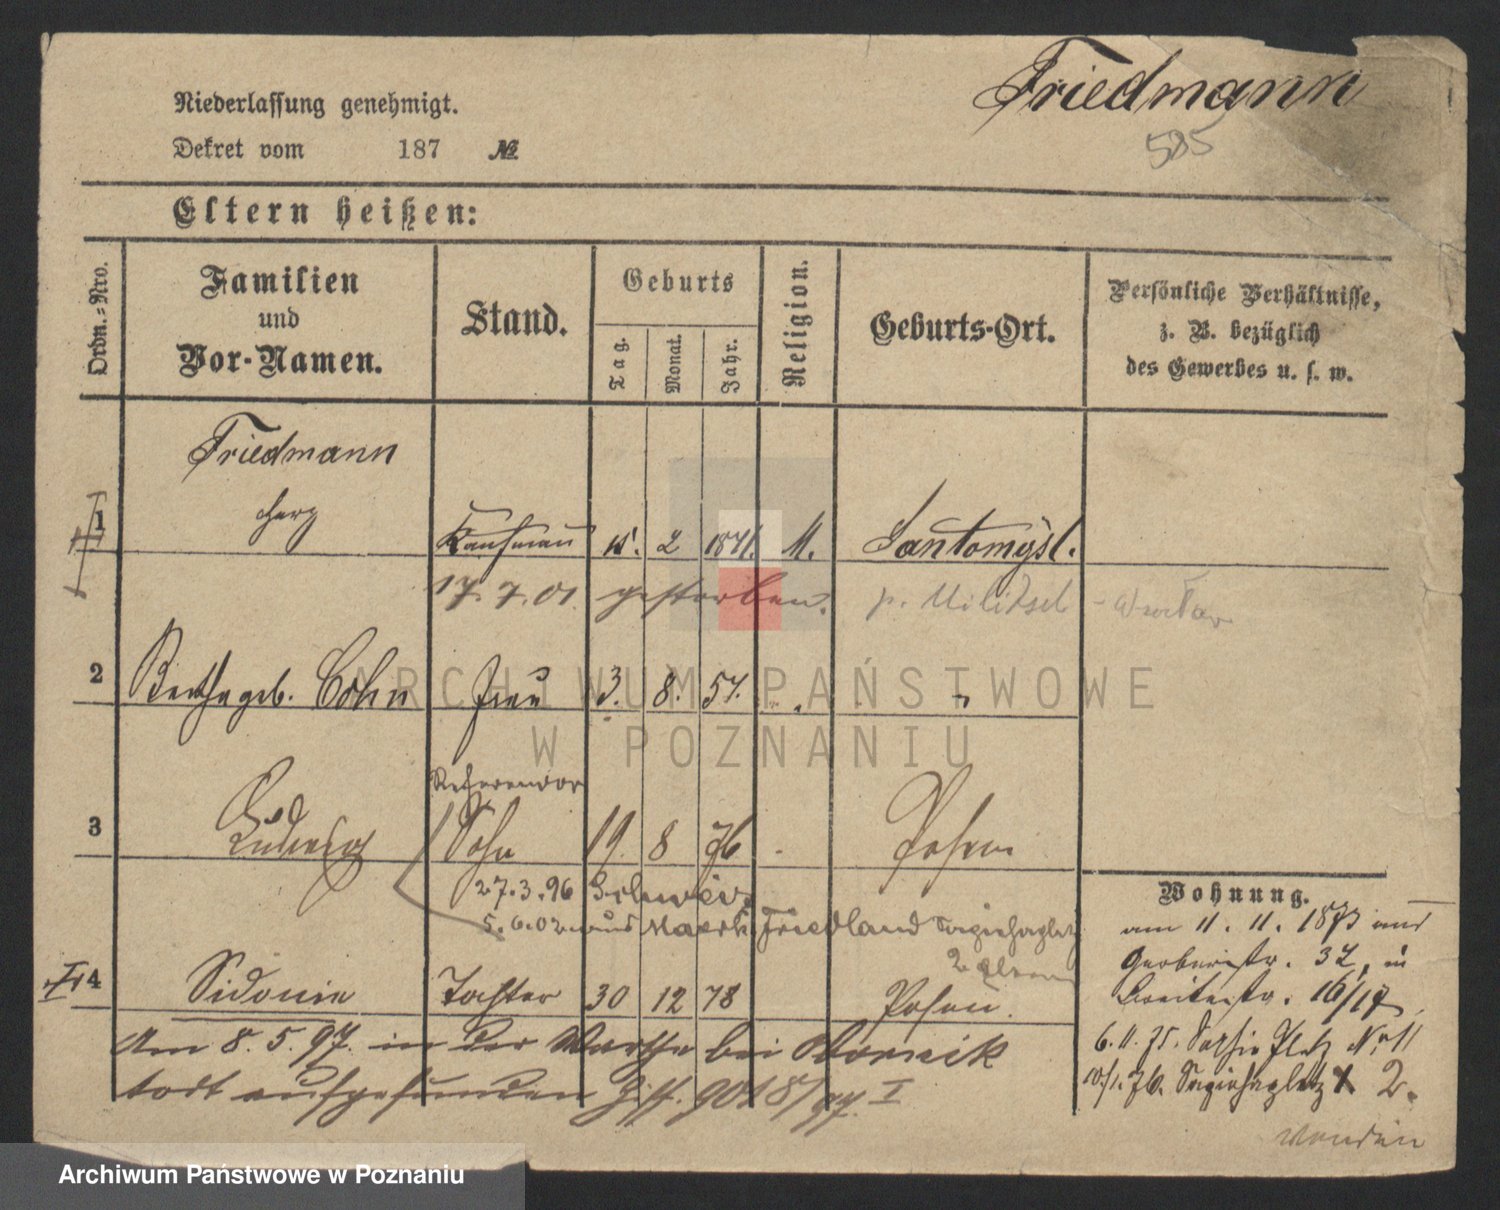 Friedmann
Niederlassung genehmigt.
585
Dekret vom 187 №
Eltern heißen:
Ordn.-Nro.
Familien
und
Vor-Namen.
Stand.
Geburts
Tag.
Monat.
Jahr.
Religion.
Geburts-Ort.
Persönliche Verhältnisse,
z. B. bezüglich
des Gewerbes u. s. w.
Friedmann
1 Herz Kaufmann 15. 2 1841. M. Santomysl.
17. 7. 01. gestorben. p. Militsch
2 Bertha geb. Cohn Frau 3. 8. 57. "
Referendar
3 Ludwig Sohn 19. 8 76 Posen
27. 3. 96 Schweiz
5. 6. 02 aus Maerk. Friedland Sapiehaplatz
2 Eltern
4 Sidonie Tochter 30 12 78 Posen.
Am 8. 5. 97. in der Warthe bei Obornik
todt aufgefunden 9018/97. I
Wohnung.
am 11. 11. 1873 aus
Gerberstr. 37, in
Breitestr. 16/17
6. 11. 75. Sapieha Platz No 11
10/1. 76. Sapiehaplatz 2.
wenden
ARCHIWUM PAŃSTWOWE
W POZNANIU
Archiwum Państwowe w Poznaniu